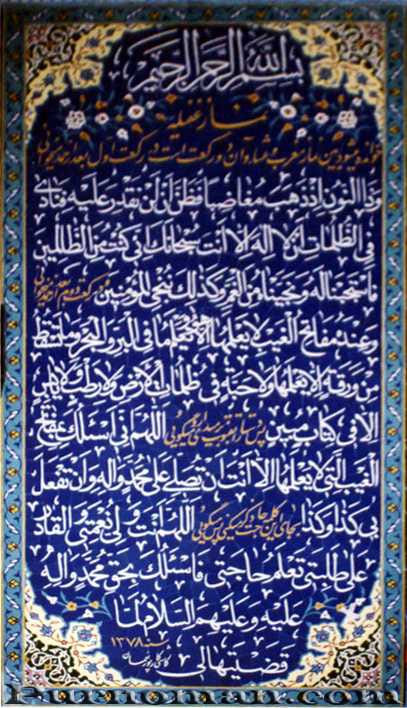 بسم الله الرحمن الرحیم
نماز غفیله
خوانده میشود بین نماز مغرب و عشاء و آن دو رکعت است در رکعت اول بعد از حمد بخوانی
وذا النون اذ ذهب مغاضبا فظن ان لن نقدر علیه فنادی
فی الظلمات ان لا اله الا انت سبحانک انی کنت من الظالمین
فاستجبنا له ونجیناه من الغم وکذلک ننجی المؤمنین و در رکعت دوم بعد از حمد بخوانی
وعنده مفاتح الغیب لا یعلمها الا هو ویعلم ما فی البر والبحر وما تسقط
من ورقة الا یعلمها ولا حبة فی ظلمات الارض ولا رطب ولا یابس
الا فی کتاب مبین پس دستها را بقنوت برمیداری و میگوئی اللهم انی اسئلک بمفاتح
الغیب التی لا یعلمها الا انت ان تصلی علی محمد واله وان تفعل
بی کذا وکذا بجای این کلمه حاجت میگوئی پس میگوئی اللهم انت ولی نعمتی والقادر
علی طلبتی تعلم حاجتی فاسئلک بحق محمد واله
علیه وعلیهم السلام لما
قضیتها لی
سنه ۱۳۷۸